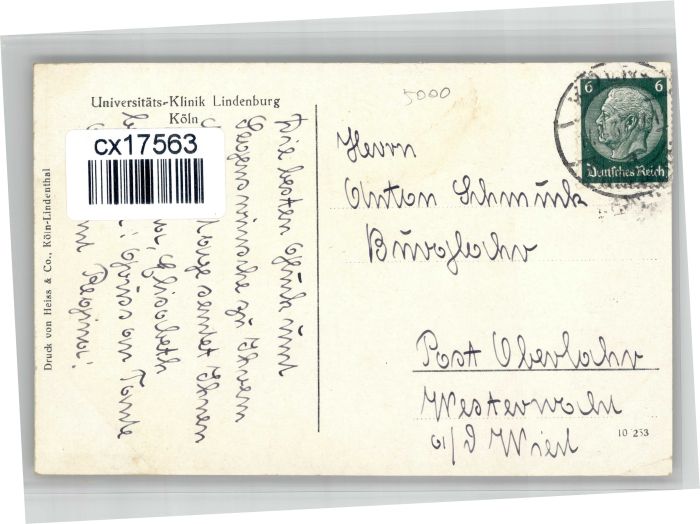 Universitäts-Klinik Lindenburg
Köln
cx17563
Druck von Heiss & Co., Köln-Lindenthal
Die besten Glück und
Segenswünsche zu Ihrem
sendet Ihnen
Elisabeth
Gruss an Tante
5000
6 6
Deutsches Reich
Herrn
Anton Schmunk
Burglahr
Post Oberlahr
Westerwald
a/d Wied
10 253